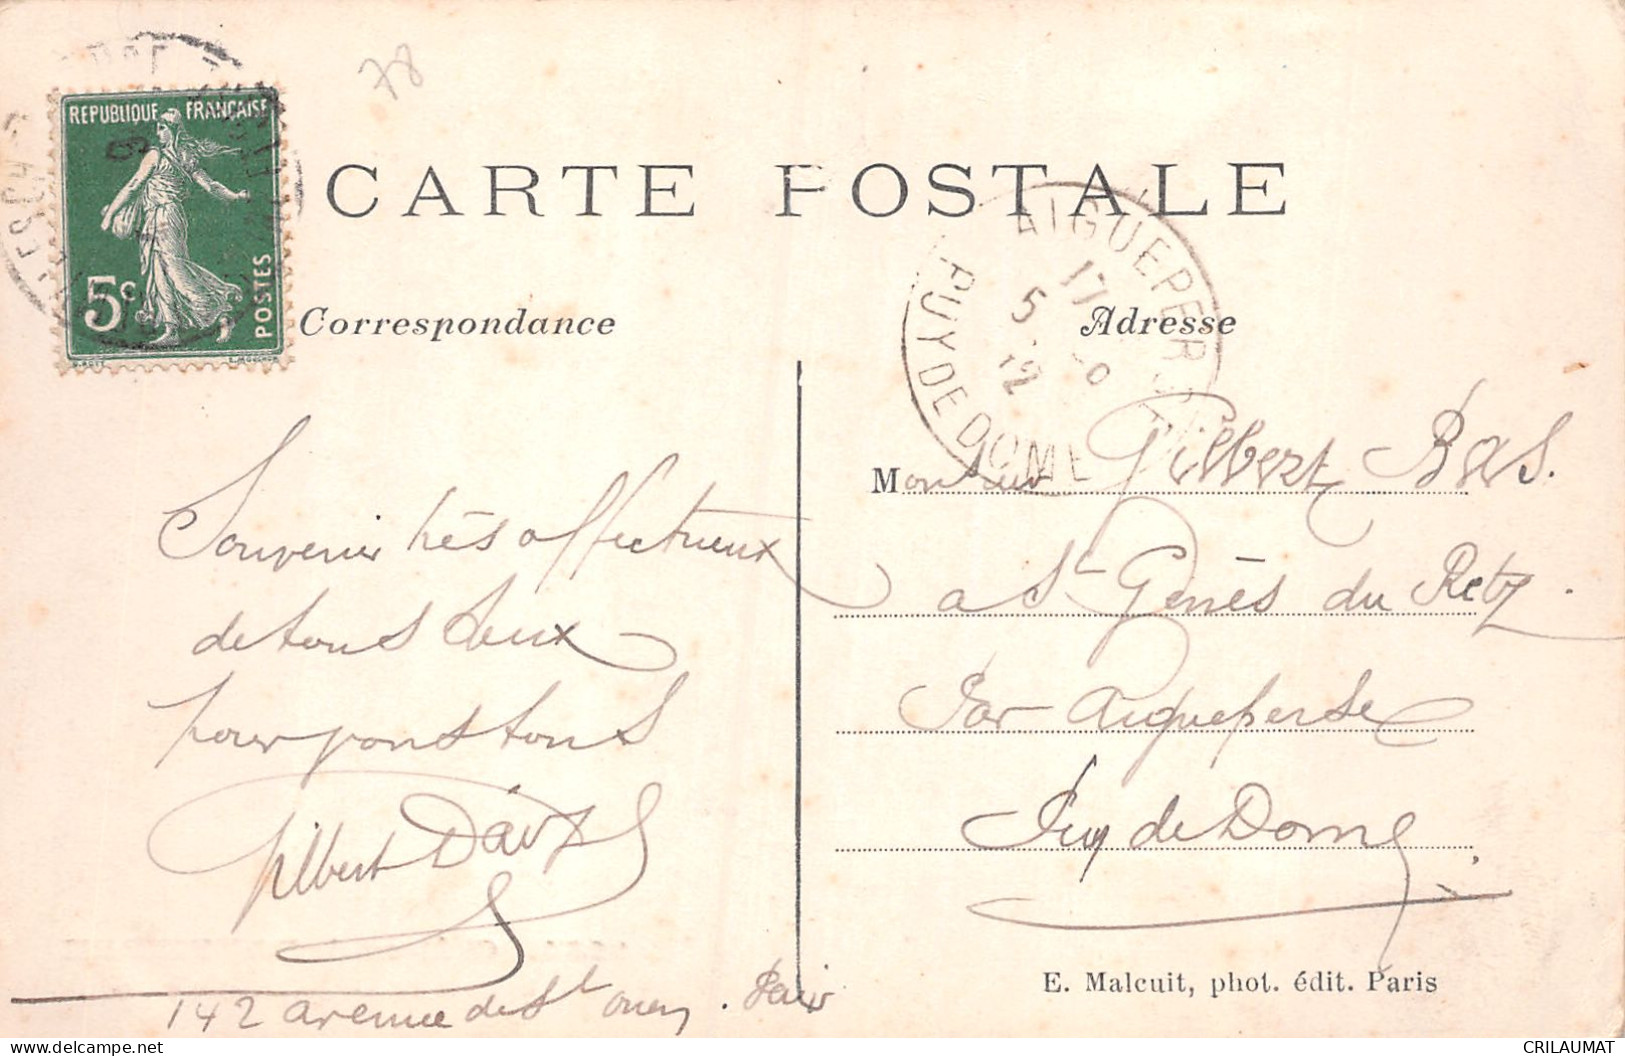 78
REPUBLIQUE FRANÇAISE
5c
POSTES
CARTE POSTALE
AIGUEPERSE
PUY DE DOME
17
5
12
Correspondance
Adresse
Souvenir très affectueux
de tous deux
pour vous tous
Gilbert
142 avenue de St ouen. Paris
Monsieur Gilbert Bas.
a St Genès du Retz
Par Aigueperse
Puy de Dome
E. Malcuit, phot. édit. Paris
CRILAUMAT